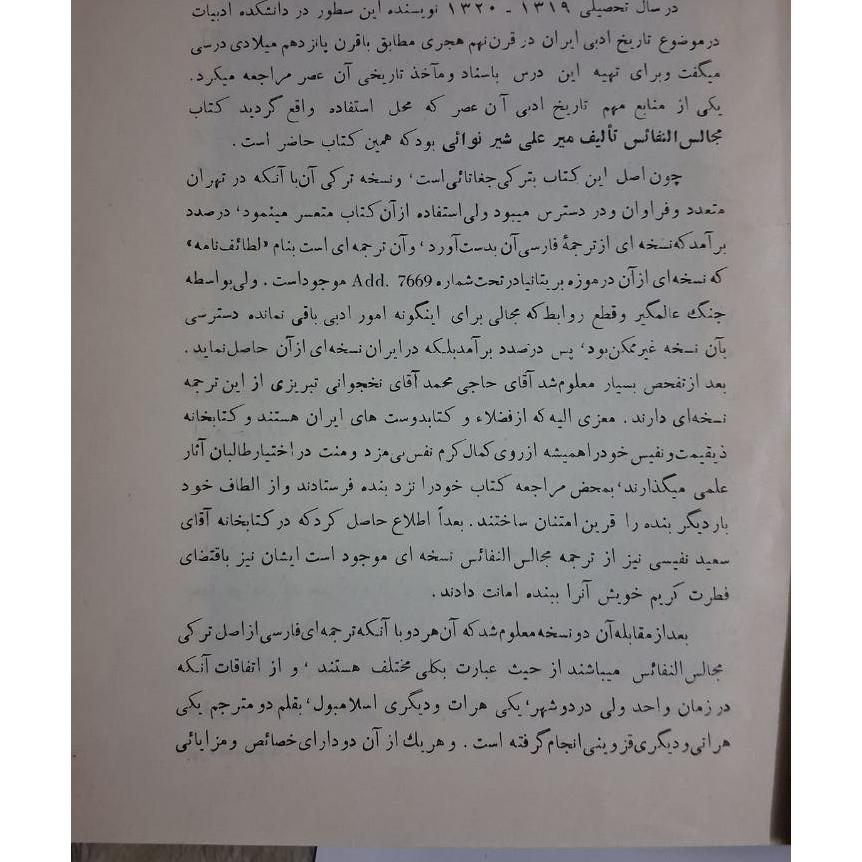 در سال تحصیلی ۱۳۱۹ ـ ۱۳۲۰ نویسنده این سطور در دانشکده ادبیات
در موضوع تاریخ ادبی ایران در قرن نهم هجری مطابق باقرن پانزدهم میلادی درسی
میگفت و برای تهیه این درس باسناد و مآخذ تاریخی آن عصر مراجعه میکرد.
یکی از منابع مهم تاریخ ادبی آن عصر که محل استفاده واقع گردید کتاب
مجالس النفائس تألیف میر علی شیر نوائی بود که همین کتاب حاضر است .
چون اصل این کتاب بترکی جغاتائی است، و نسخه ترکی آن با آنکه در تهران
متعدد و فراوان و در دسترس میبود ولی استفاده از آن کتاب متعسر مینمود، درصدد
برآمد که نسخه ای از ترجمهٔ فارسی آن بدست آورد، و آن ترجمه ای است بنام «لطائف نامه»
که نسخه ای از آن در موزه بریتانیا در تحت شماره Add. 7669 موجود است . ولی بواسطه
جنگ عالمگیر و قطع روابط که مجالی برای اینگونه امور ادبی باقی نمانده دسترسی
بآن نسخه غیرممکن بود، پس درصدد برآمد بلکه در ایران نسخه ای از آن حاصل نماید .
بعد از تفحص بسیار معلوم شد آقای حاجی محمد آقای نخجوانی تبریزی از این ترجمه
نسخه ای دارند . معزی الیه که از فضلاء و کتابدوست های ایران هستند و کتابخانه
ذیقیمت و نفیس خود را همیشه از روی کمال کرم نفس بی مزد و منت در اختیار طالبان آثار
علمی میگذارند، بمحض مراجعه کتاب خود را نزد بنده فرستادند و از الطاف خود
بار دیگر بنده را قرین امتنان ساختند . بعداً اطلاع حاصل کرد که در کتابخانه آقای
سعید نفیسی نیز از ترجمه مجالس النفائس نسخه ای موجود است ایشان نیز باقتضای
فطرت کریم خویش آنرا ببنده امانت دادند .
بعد از مقابله آن دو نسخه معلوم شد که آن هر دو با آنکه ترجمه ای فارسی از اصل ترکی
مجالس النفائس میباشند از حیث عبارت بکلی مختلف هستند ، و از اتفاقات آنکه
در زمان واحد ولی در دو شهر، یکی هرات و دیگری اسلامبول، بقلم دو مترجم یکی
هراتی و دیگری قزوینی انجام گرفته است . و هر یك از آن دو دارای خصائص و مزایائی